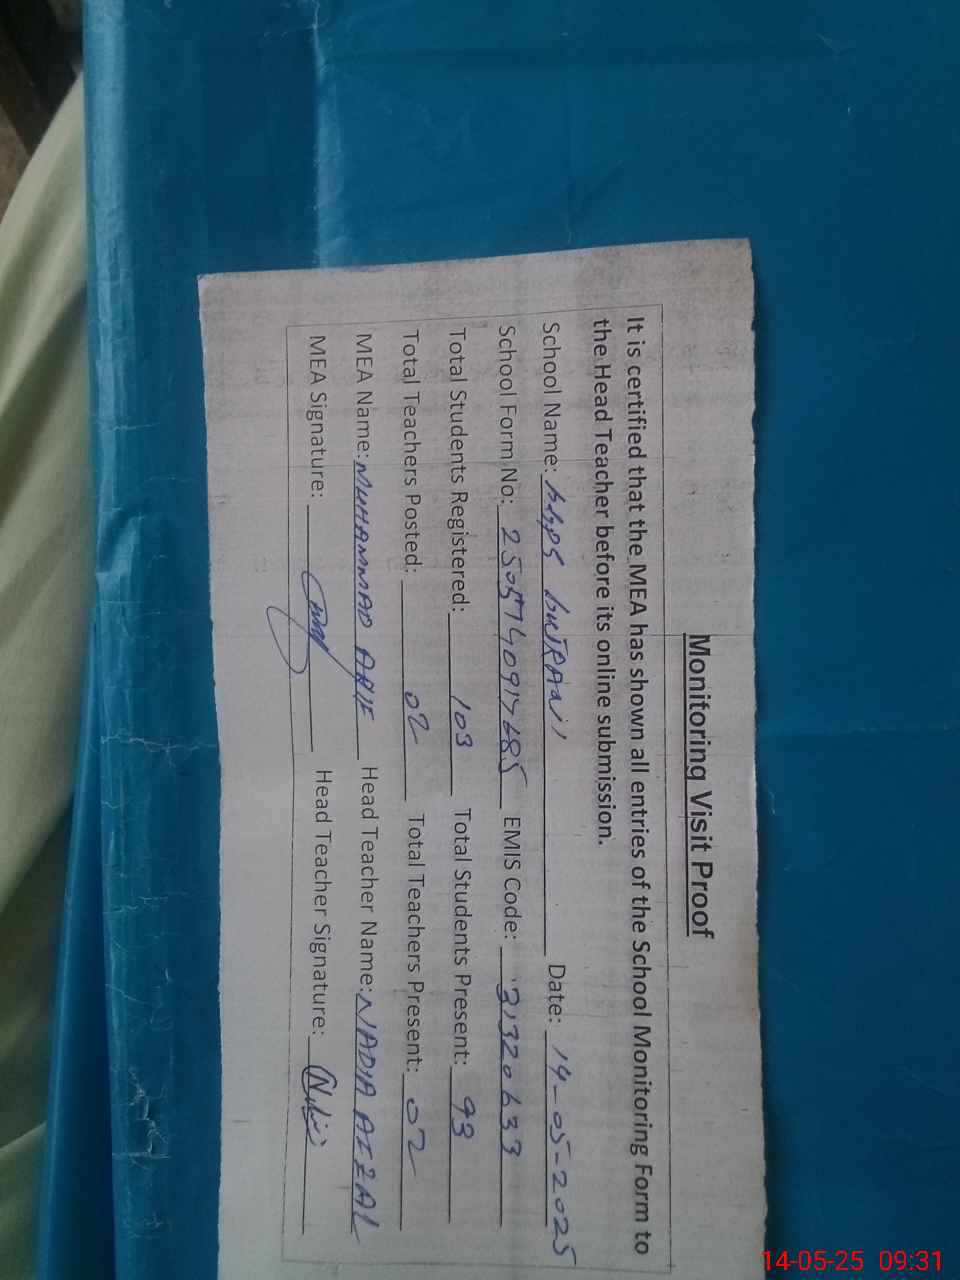 Monitoring Visit Proof
It is certified that the MEA has shown all entries of the School Monitoring Form to
the Head Teacher before its online submission.
School Name: Date: 14-05-2025
School Form No: EMIS Code: 31320633
Total Students Registered: 103 Total Students Present: 93
Total Teachers Posted: 02 Total Teachers Present: 02
MEA Name: MUHAMMAD ARIF Head Teacher Name: NADIA AFZAL
MEA Signature: Head Teacher Signature:
14-05-25 09:31